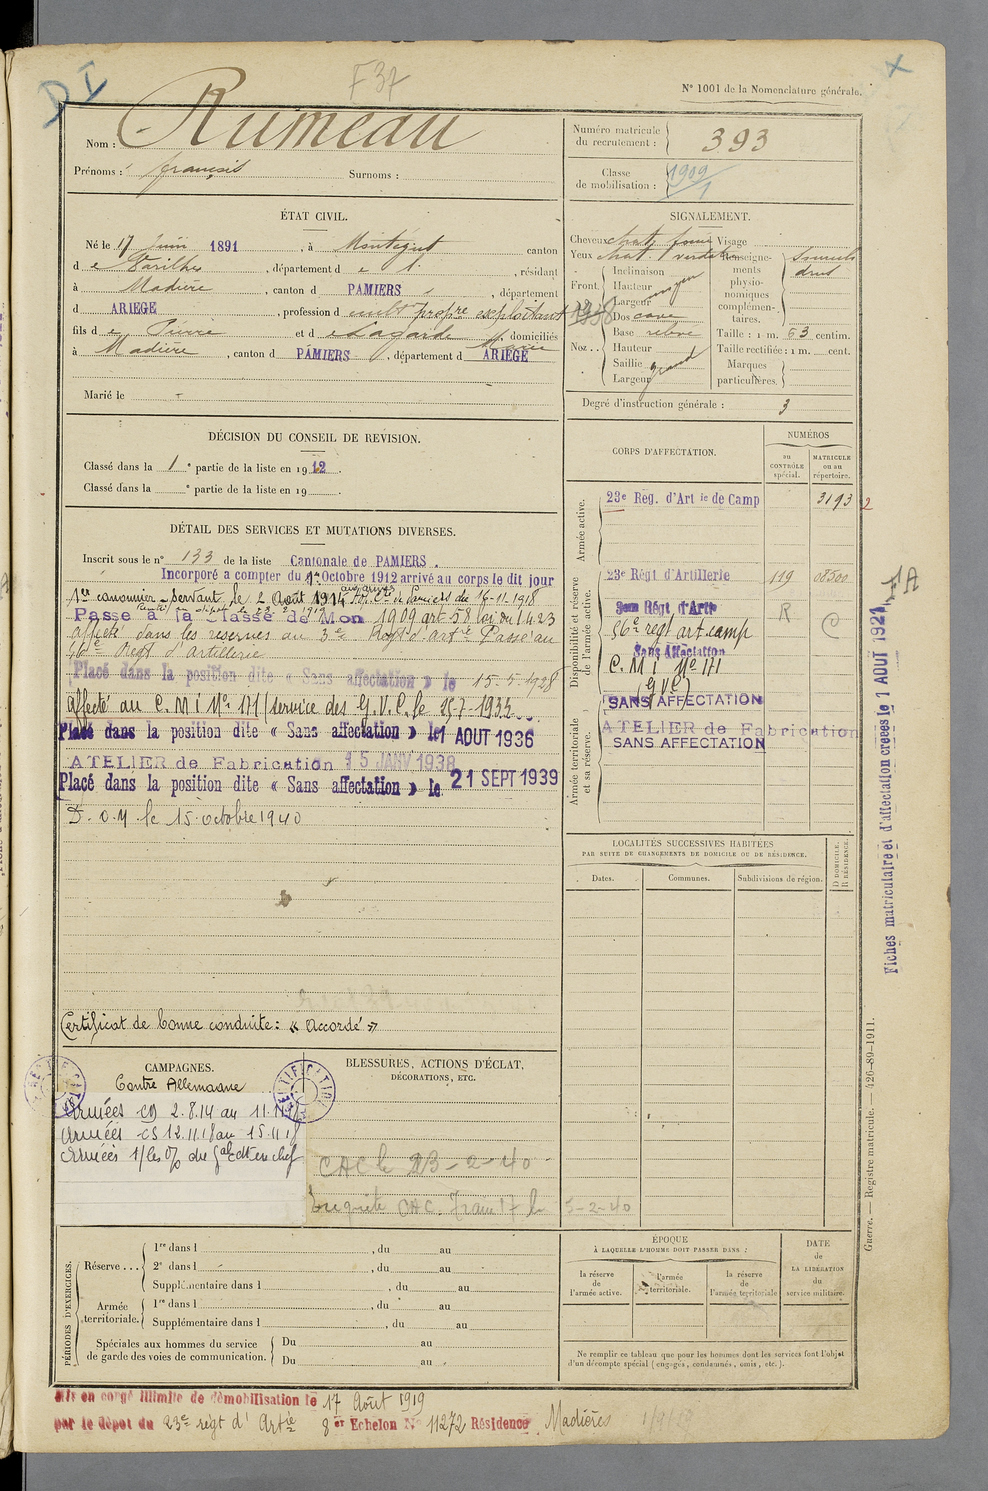 D I
F 37
X
N° 1001 de la Nomenclature générale.
Nom : Rumeau
Prénoms : françois Surnoms :
Numéro matricule du recrutement : 393
Classe de mobilisation : 1909/1
ÉTAT CIVIL.
Né le 17 Juin 1891, à Montégut canton
d e Varilhes, département d e l', résidant
à Madière, canton d PAMIERS, département
d ARIEGE, profession d cult propre exploitant
fils d e Pierre et d e Lagarde Marie domiciliés
à Madière, canton d PAMIERS, département d ARIEGE
Marié le
SIGNALEMENT.
Cheveux chat. foncé Visage
Yeux chat. verdâtre
Renseignements physionomiques complémentaires. Sourcils droits
Front. Inclinaison
Hauteur moyen
Largeur
Nez... Dos cave
Base relevé
Hauteur
Saillie grand
Largeur
Taille : 1 m. 63 centim.
Taille rectifiée : 1 m. cent.
Marques particulières.
Degré d'instruction générale : 3
DÉCISION DU CONSEIL DE REVISION.
Classé dans la 1e partie de la liste en 1912.
Classé dans la e partie de la liste en 19 .
DÉTAIL DES SERVICES ET MUTATIONS DIVERSES.
Inscrit sous le n° 133 de la liste Cantonale de PAMIERS.
Incorporé a compter du 1er Octobre 1912 arrivé au corps le dit jour
1er canonnier-servant le 2 Août 1914
de Pamiers du 16-11-1918
Passé à la Classe de Mon 1909 art 58 loi du 1.4.23
affecté dans les réserves au 3e Régt d'artie Passé au
56e Régt d'Artillerie
Placé dans la position dite « Sans affectation » le 15-5-1928
Affecté au C.M.I No 171 (service des G.V.C. le 25-7-1933
Placé dans la position dite « Sans affectation » le 1 AOUT 1936
ATELIER de Fabrication 15 JANV 1938
Placé dans la position dite « Sans affectation » le 21 SEPT 1939
D. O. M. le 15 octobre 1940
Certificat de bonne conduite : « accordé »
CORPS D'AFFECTATION.
NUMÉROS
au CONTRÔLE spécial.
MATRICULE ou au répertoire.
Armée active.
23e Rég. d'Art ie de Camp 3193 2
Disponibilité et réserve de l'armée active.
23e Régt d'Artillerie 119 08500
3em Régt d'Artie R C
56e régt art. camp
Sans Affectation
C.M.I No 171
(GVC)
SANS AFFECTATION
Armée territoriale et sa réserve.
ATELIER de Fabrication
SANS AFFECTATION
Fiches matriculaire et d'affectation créées le 1 AOUT 1921
LOCALITÉS SUCCESSIVES HABITÉES
PAR SUITE DE CHANGEMENTS DE DOMICILE OU DE RÉSIDENCE.
Dates. Communes. Subdivisions de région.
D DOMICILE. R RÉSIDENCE.
CAMPAGNES.
Contre Allemagne
Armées CD 2.8.14 au 11.11.18
Armées CS 12.11.18 au 15.11.18
BLESSURES, ACTIONS D'ÉCLAT,
DÉCORATIONS, ETC.
CAC le 23-2-40
Enquête CAC. 5-2-40
PÉRIODES D'EXERCICES.
Réserve...
1re dans l , du au
2e dans l , du au
Supplémentaire dans l , du au
Armée territoriale.
1re dans l , du au
Supplémentaire dans l , du au
Spéciales aux hommes du service de garde des voies de communication.
Du au
Du au
ÉPOQUE
À LAQUELLE L'HOMME DOIT PASSER DANS :
la réserve de l'armée active.
l'armée territoriale.
la réserve de l'armée territoriale
DATE de LA LIBÉRATION du service militaire.
Ne remplir ce tableau que pour les hommes dont les services font l'objet
d'un décompte spécial (engagés, condamnés, omis, etc.).
Guerre. — Registre matricule. — 426-89-1911.
Mis en congé illimité de démobilisation le 17 Août 1919
par le dépôt du 23e régt d'Artie 8er Echelon N° 11272 Résidence Madières